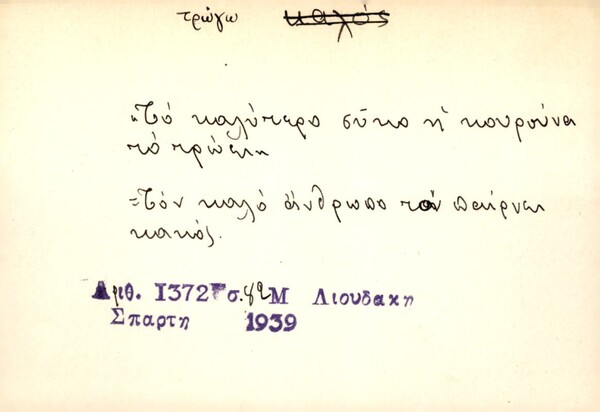 τρώγω καλός
"Τό καλύτερο σῦκο ἡ κουρούνα
τό τρώει"
=Τόν καλό ἄνθρωπο τόν παίρνει
κακός.
Αριθ. 1372 σ. 82 Μ Λιουδακη
Σπαρτη 1939